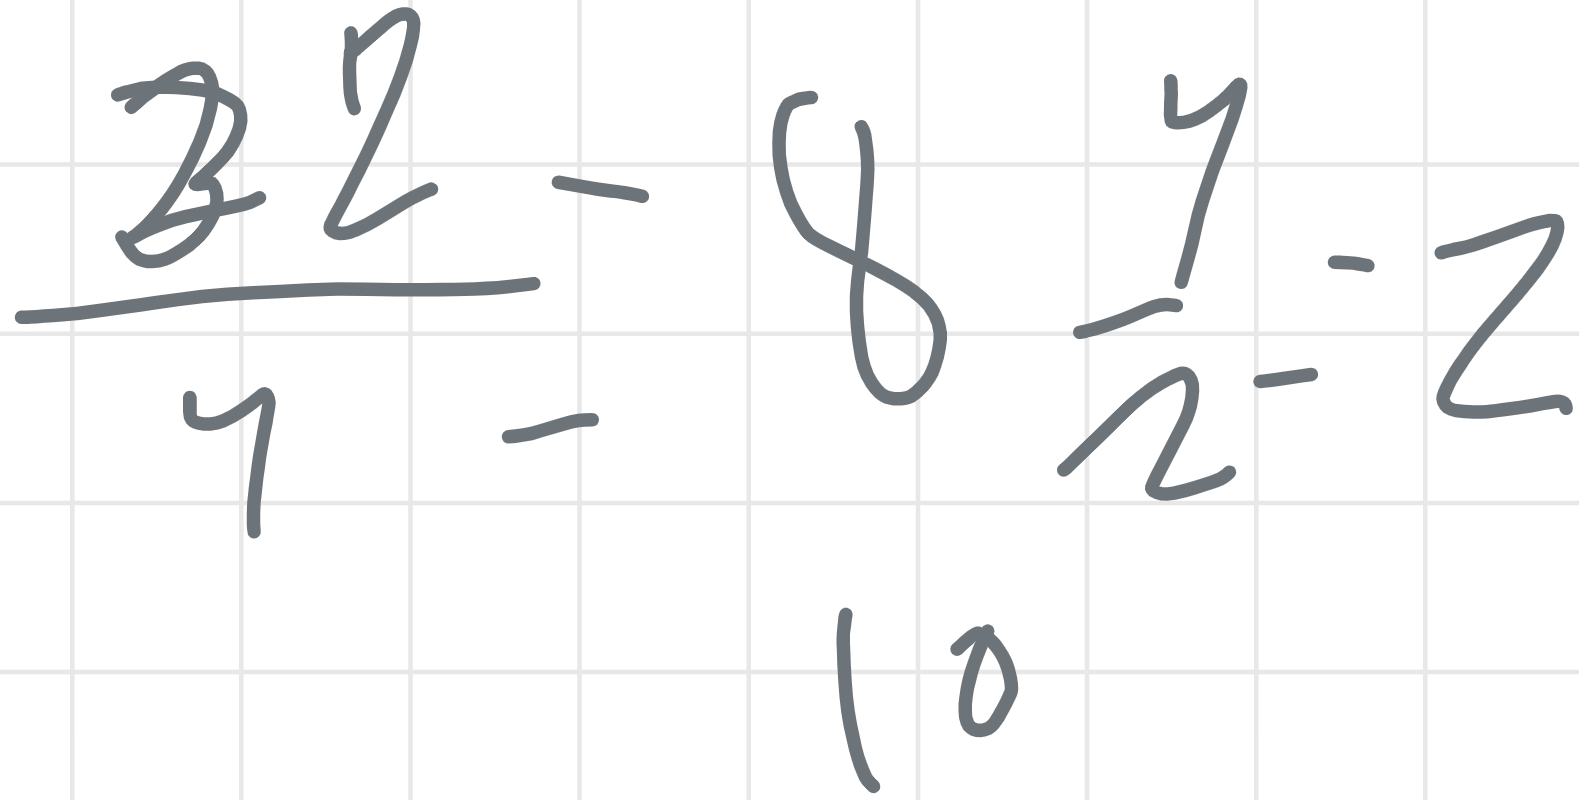 32/4 = 8 4/2 = 2
10